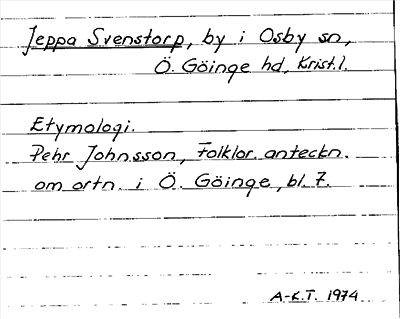 Jeppa Svenstorp, by i Osby sn,
Ö. Göinge hd, Krist. l.
Etymologi.
Pehr Johnsson, Folklor. anteckn.
om ortn. i Ö. Göinge, bl. 7.
A-K.T. 1974